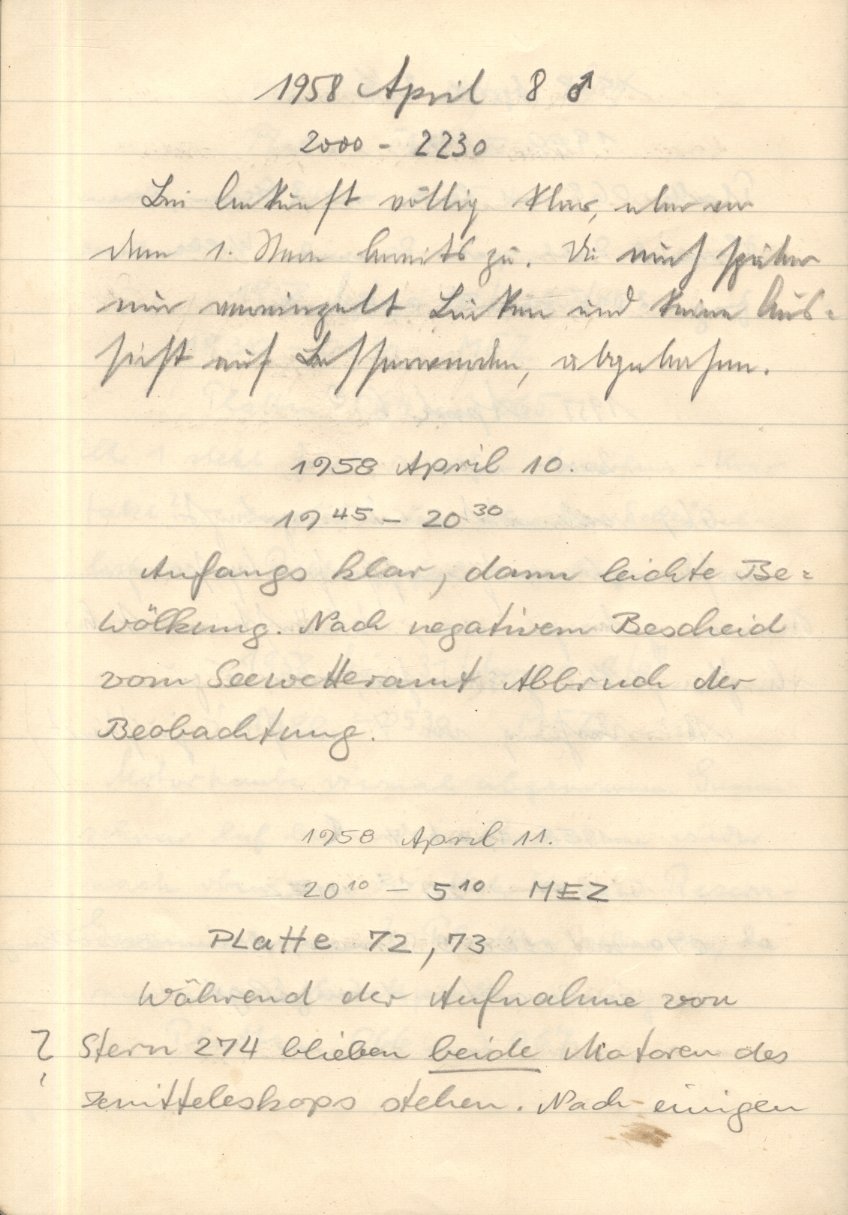 1958 April 8 ♂
2000 - 2230
Bei Ankunft völlig klar, aber vor
dem 1. Stern bereits zu. Da auch später
nur vereinzelt Lücken und keine Aus=
sicht auf Besserwerden, abgebrochen.
1958 April 10.
19 45 - 20 30
Anfangs klar, dann leichte Be=
wölkung. Nach negativem Bescheid
vom Seewetteramt Abbruch der
Beobachtung.
1958 April 11.
20 10 - 5 10 MEZ
Platte 72, 73
Während der Aufnahme von
? Stern 274 blieben beide Motoren des
Zenitteleskops stehen. Nach einigen